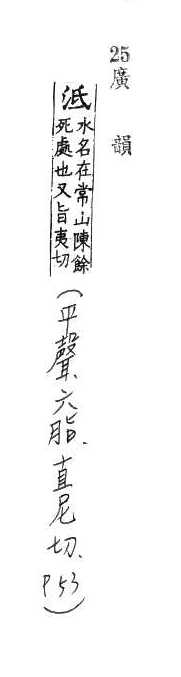 25廣韻
泜水名在常山陳餘
死處也又旨夷切
(平聲、六脂、直尼切、P53)